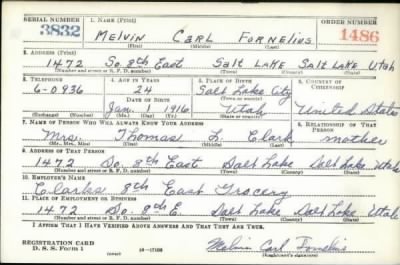 SERIAL NUMBER 1. NAME (Print) ORDER NUMBER
3832 Melvin Carl Fornelius 1486
(First) (Middle) (Last)
2. ADDRESS (Print)
1472 So. 8th East Salt Lake Salt Lake Utah
(Number and street or R. F. D. number) (Town) (County) (State)
3. TELEPHONE 4. AGE IN YEARS 5. PLACE OF BIRTH 6. COUNTRY OF CITIZENSHIP
6-0936 24 Salt Lake City
DATE OF BIRTH (Town or county)
Jan 1 1916 Utah United States
(Exchange) (Number) (Mo.) (Day) (Yr.) (State or country)
7. NAME OF PERSON WHO WILL ALWAYS KNOW YOUR ADDRESS 8. RELATIONSHIP OF THAT PERSON
Mrs. Thomas L. Clark mother
(Mr., Mrs., Miss) (First) (Middle) (Last)
9. ADDRESS OF THAT PERSON
1472 So. 8th East Salt Lake Salt Lake Utah
(Number and street or R. F. D. number) (Town) (County) (State)
10. EMPLOYER'S NAME
Clarks 8th East Grocery
11. PLACE OF EMPLOYMENT OR BUSINESS
1472 So. 8th E. Salt Lake Salt Lake Utah
(Number and street or R. F. D. number) (Town) (County) (State)
I AFFIRM THAT I HAVE VERIFIED ABOVE ANSWERS AND THAT THEY ARE TRUE.
REGISTRATION CARD
D. S. S. Form 1 (over) Melvin Carl Fornelius
(Registrant's signature)